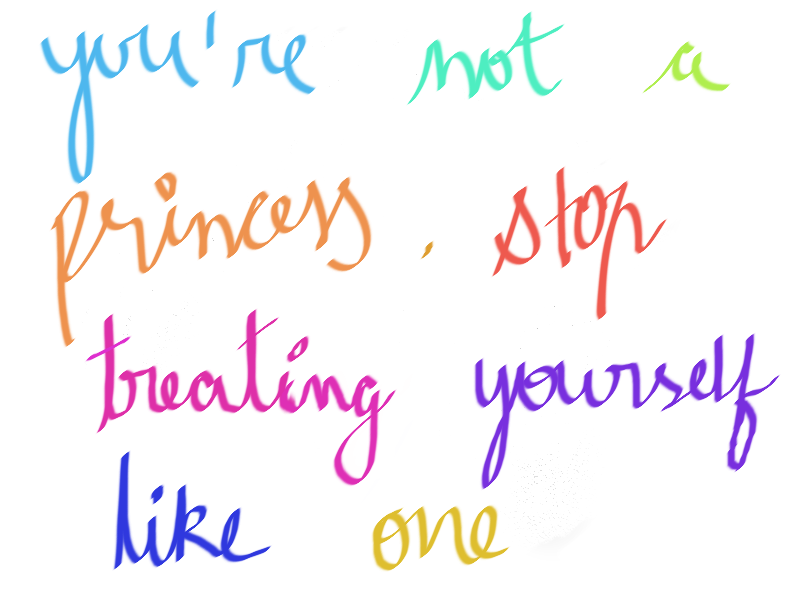 you're not a
princess. stop
treating yourself
like one